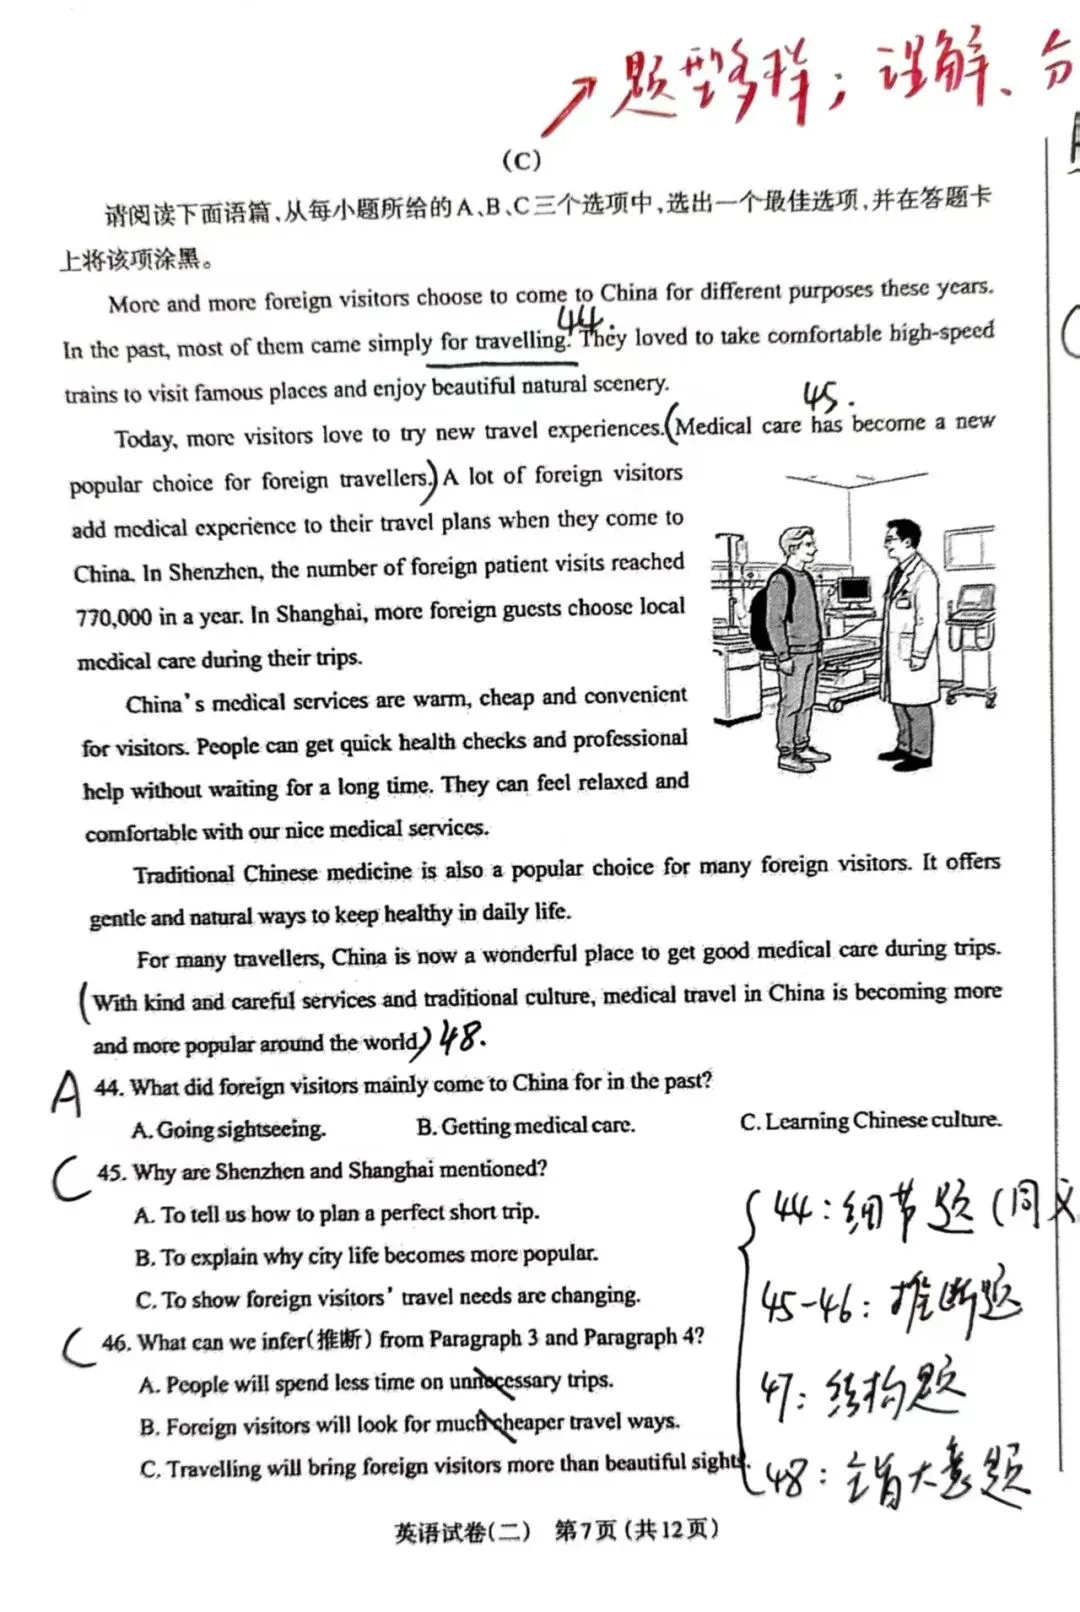 题型多样；理解、分
(C)
请阅读下面语篇，从每小题所给的A、B、C三个选项中，选出一个最佳选项，并在答题卡
上将该项涂黑。
More and more foreign visitors choose to come to China for different purposes these years.
44.
In the past, most of them came simply for travelling. They loved to take comfortable high-speed
trains to visit famous places and enjoy beautiful natural scenery.
45.
Today, more visitors love to try new travel experiences. (Medical care has become a new
popular choice for foreign travellers.) A lot of foreign visitors
add medical experience to their travel plans when they come to
China. In Shenzhen, the number of foreign patient visits reached
770,000 in a year. In Shanghai, more foreign guests choose local
medical care during their trips.
China's medical services are warm, cheap and convenient
for visitors. People can get quick health checks and professional
help without waiting for a long time. They can feel relaxed and
comfortable with our nice medical services.
Traditional Chinese medicine is also a popular choice for many foreign visitors. It offers
gentle and natural ways to keep healthy in daily life.
For many travellers, China is now a wonderful place to get good medical care during trips.
(With kind and careful services and traditional culture, medical travel in China is becoming more
and more popular around the world.) 48.
A 44. What did foreign visitors mainly come to China for in the past?
A. Going sightseeing. B. Getting medical care. C. Learning Chinese culture.
C 45. Why are Shenzhen and Shanghai mentioned?
A. To tell us how to plan a perfect short trip.
B. To explain why city life becomes more popular.
C. To show foreign visitors' travel needs are changing.
C 46. What can we infer(推断) from Paragraph 3 and Paragraph 4?
A. People will spend less time on unnecessary trips.
B. Foreign visitors will look for much cheaper travel ways.
C. Travelling will bring foreign visitors more than beautiful sights.
44：细节题（同义
45-46：推断题
47：结构题
48：主旨大意题
英语试卷(二) 第7页(共12页)